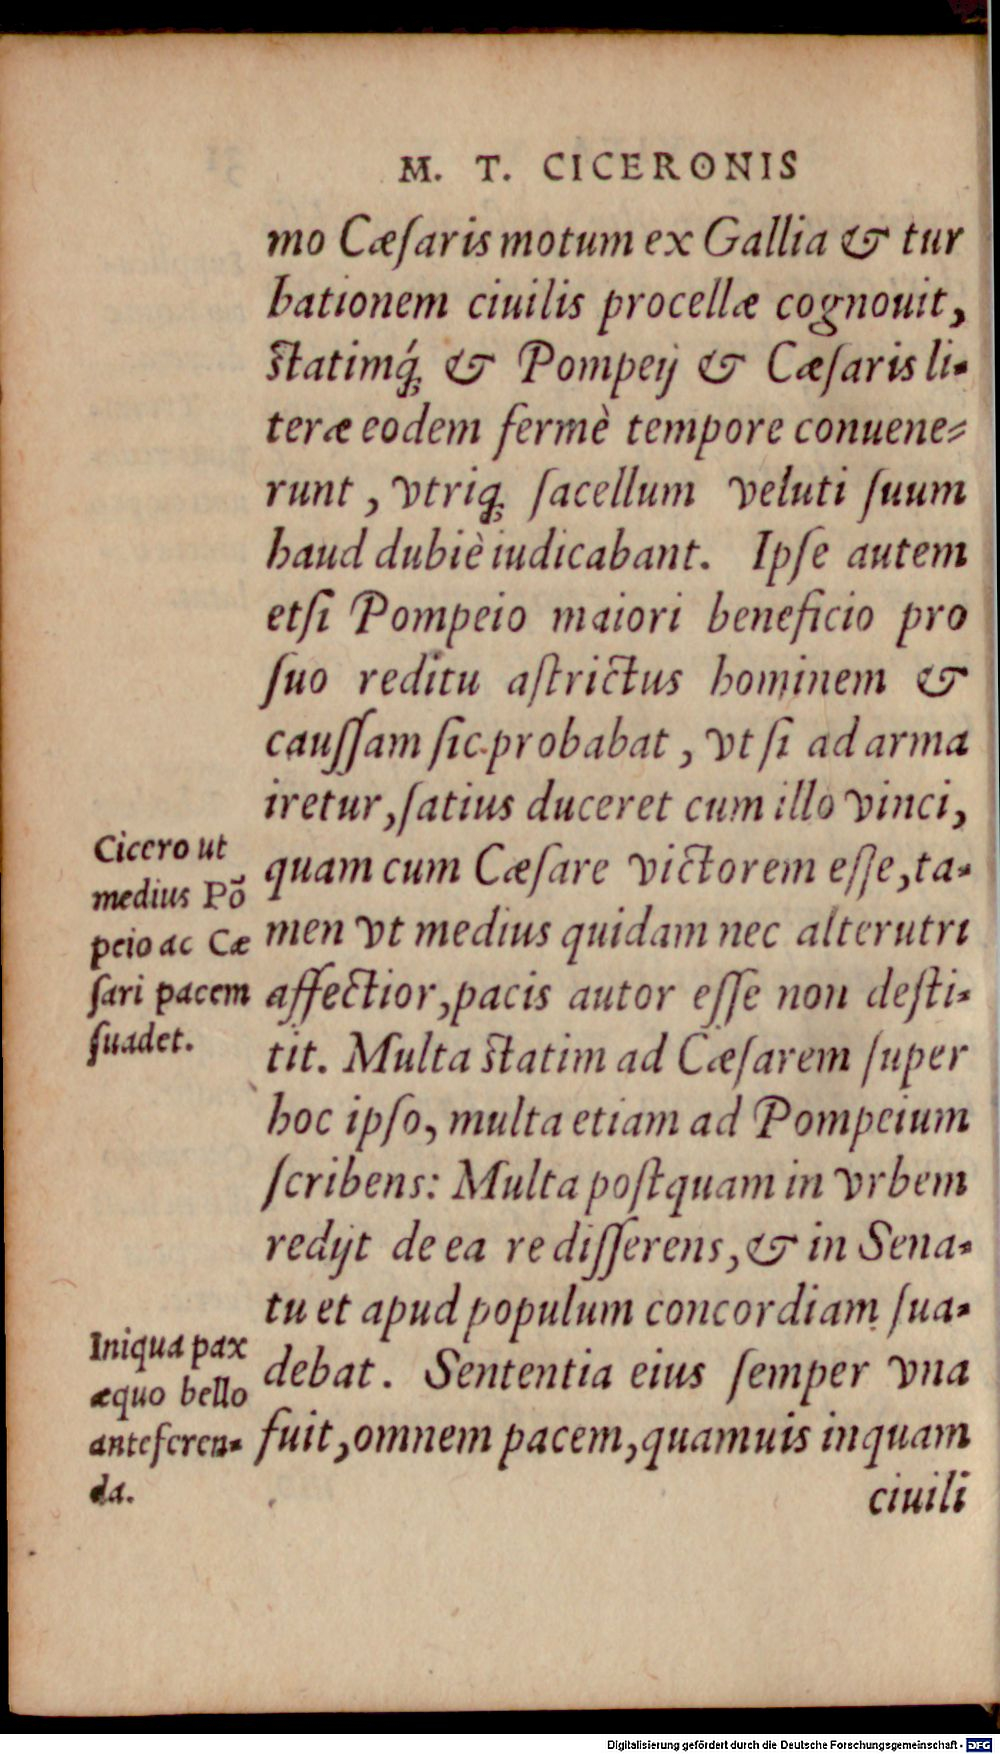 M. T. CICERONIS
mo Cæſaris motum ex Gallia & tur
bationem ciuilis procellæ cognouit,
ſtatimq́ꝫ & Pompeij & Cæſaris li-
teræ eodem fermè tempore conuene-
runt, vtriqꝫ ſacellum veluti ſuum
haud dubiè iudicabant. Ipſe autem
etſi Pompeio maiori beneficio pro
ſuo reditu aſtrictus hominem &
cauſſam ſic probabat, vt ſi ad arma
iretur, ſatius duceret cum illo vinci,
quam cum Cæſare victorem eſſe, ta-
men vt medius quidam nec alterutri
affectior, pacis autor eſſe non deſti-
tit. Multa ſtatim ad Cæſarem ſuper
hoc ipſo, multa etiam ad Pompeium
ſcribens: Multa poſtquam in vrbem
redijt de ea re diſſerens, & in Sena-
tu et apud populum concordiam ſua-
debat. Sententia eius ſemper vna
fuit, omnem pacem, quamuis inquam
ciuili
Cicero ut
medius Põ
peio ac Cæ
ſari pacem
ſuadet.
Iniqua pax
æquo bello
anteferen-
da.
Digitalisierung gefördert durch die Deutsche Forschungsgemeinschaft - DFG